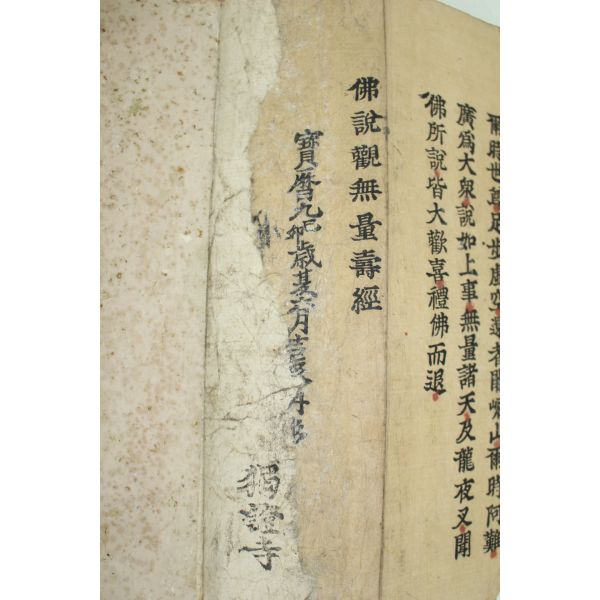 爾時世尊足步虛空還耆闍崛山爾時阿難
廣爲大衆說如上事無量諸天及龍夜叉聞
佛所說皆大歡喜禮佛而退
佛說觀無量壽經
寶曆九己卯歲
月
獨證寺